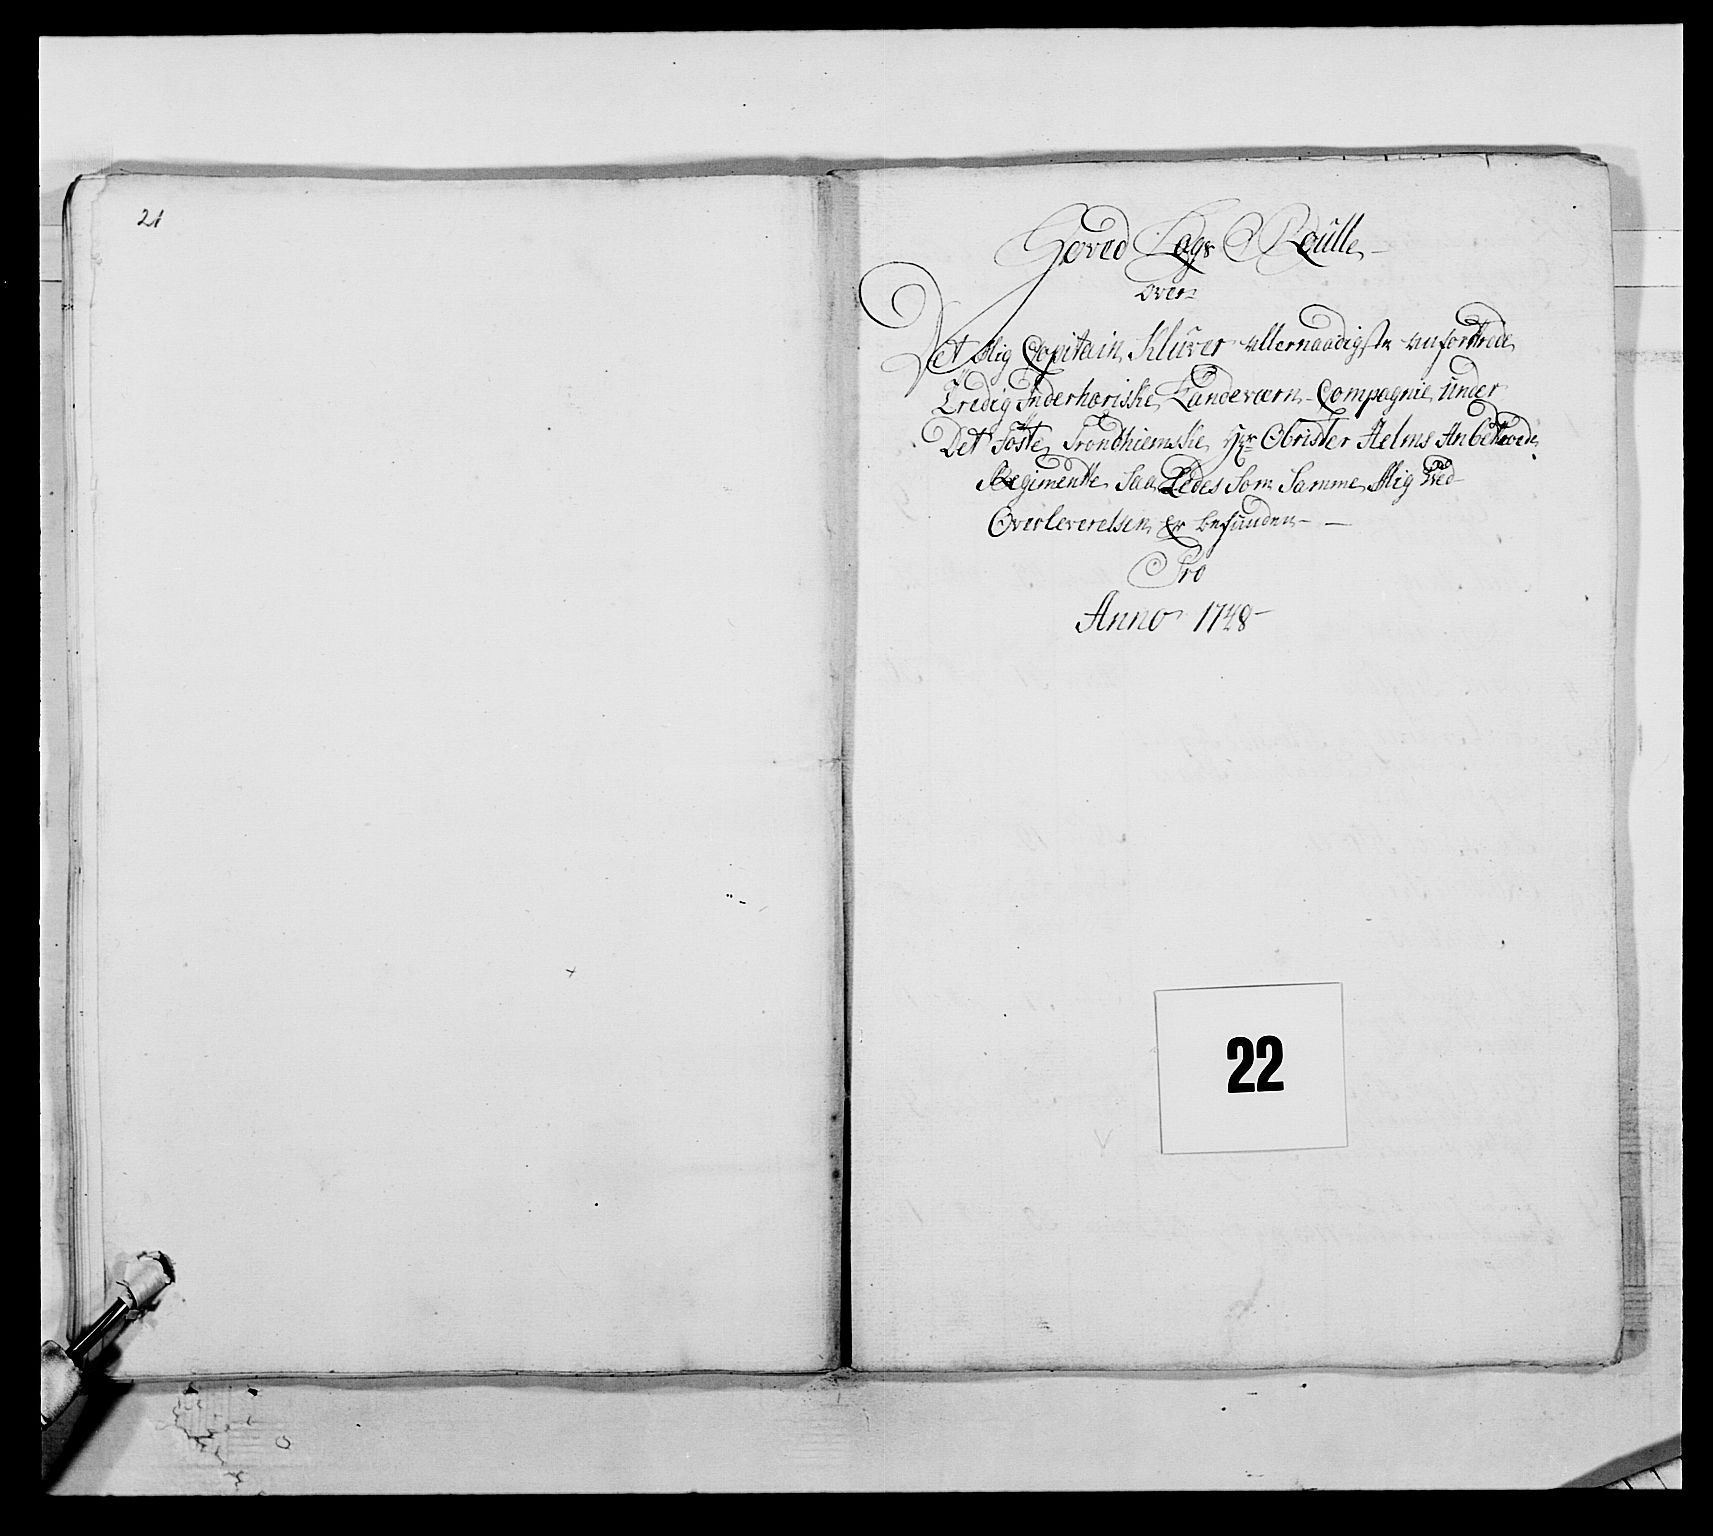 21
Hoved Lægs Roulle
over
Det Mig Capitain Klüver allernaadigste anfortrode
Inderhæriske Landeværn Compagnie under
Det Trondhiemske Hr Obrister Helms Anbetroede
Regimente, Saa Ledes Som Samme Mig ved
Overleverelsen er befunden
Pro
Anno 1748
22